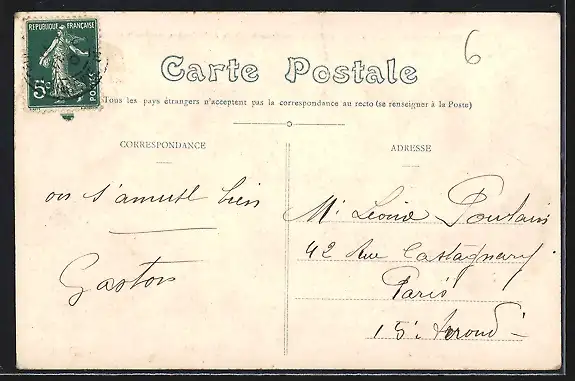 RÉPUBLIQUE FRANÇAISE
5c
POSTES
6
Carte Postale
Tous les pays étrangers n'acceptent pas la correspondance au recto (se renseigner à la Poste)
CORRESPONDANCE
on s'amuse bien
Gaston
ADRESSE
Mr Léonie Poulain
42 Rue Castagnary
Paris
15e Arrond